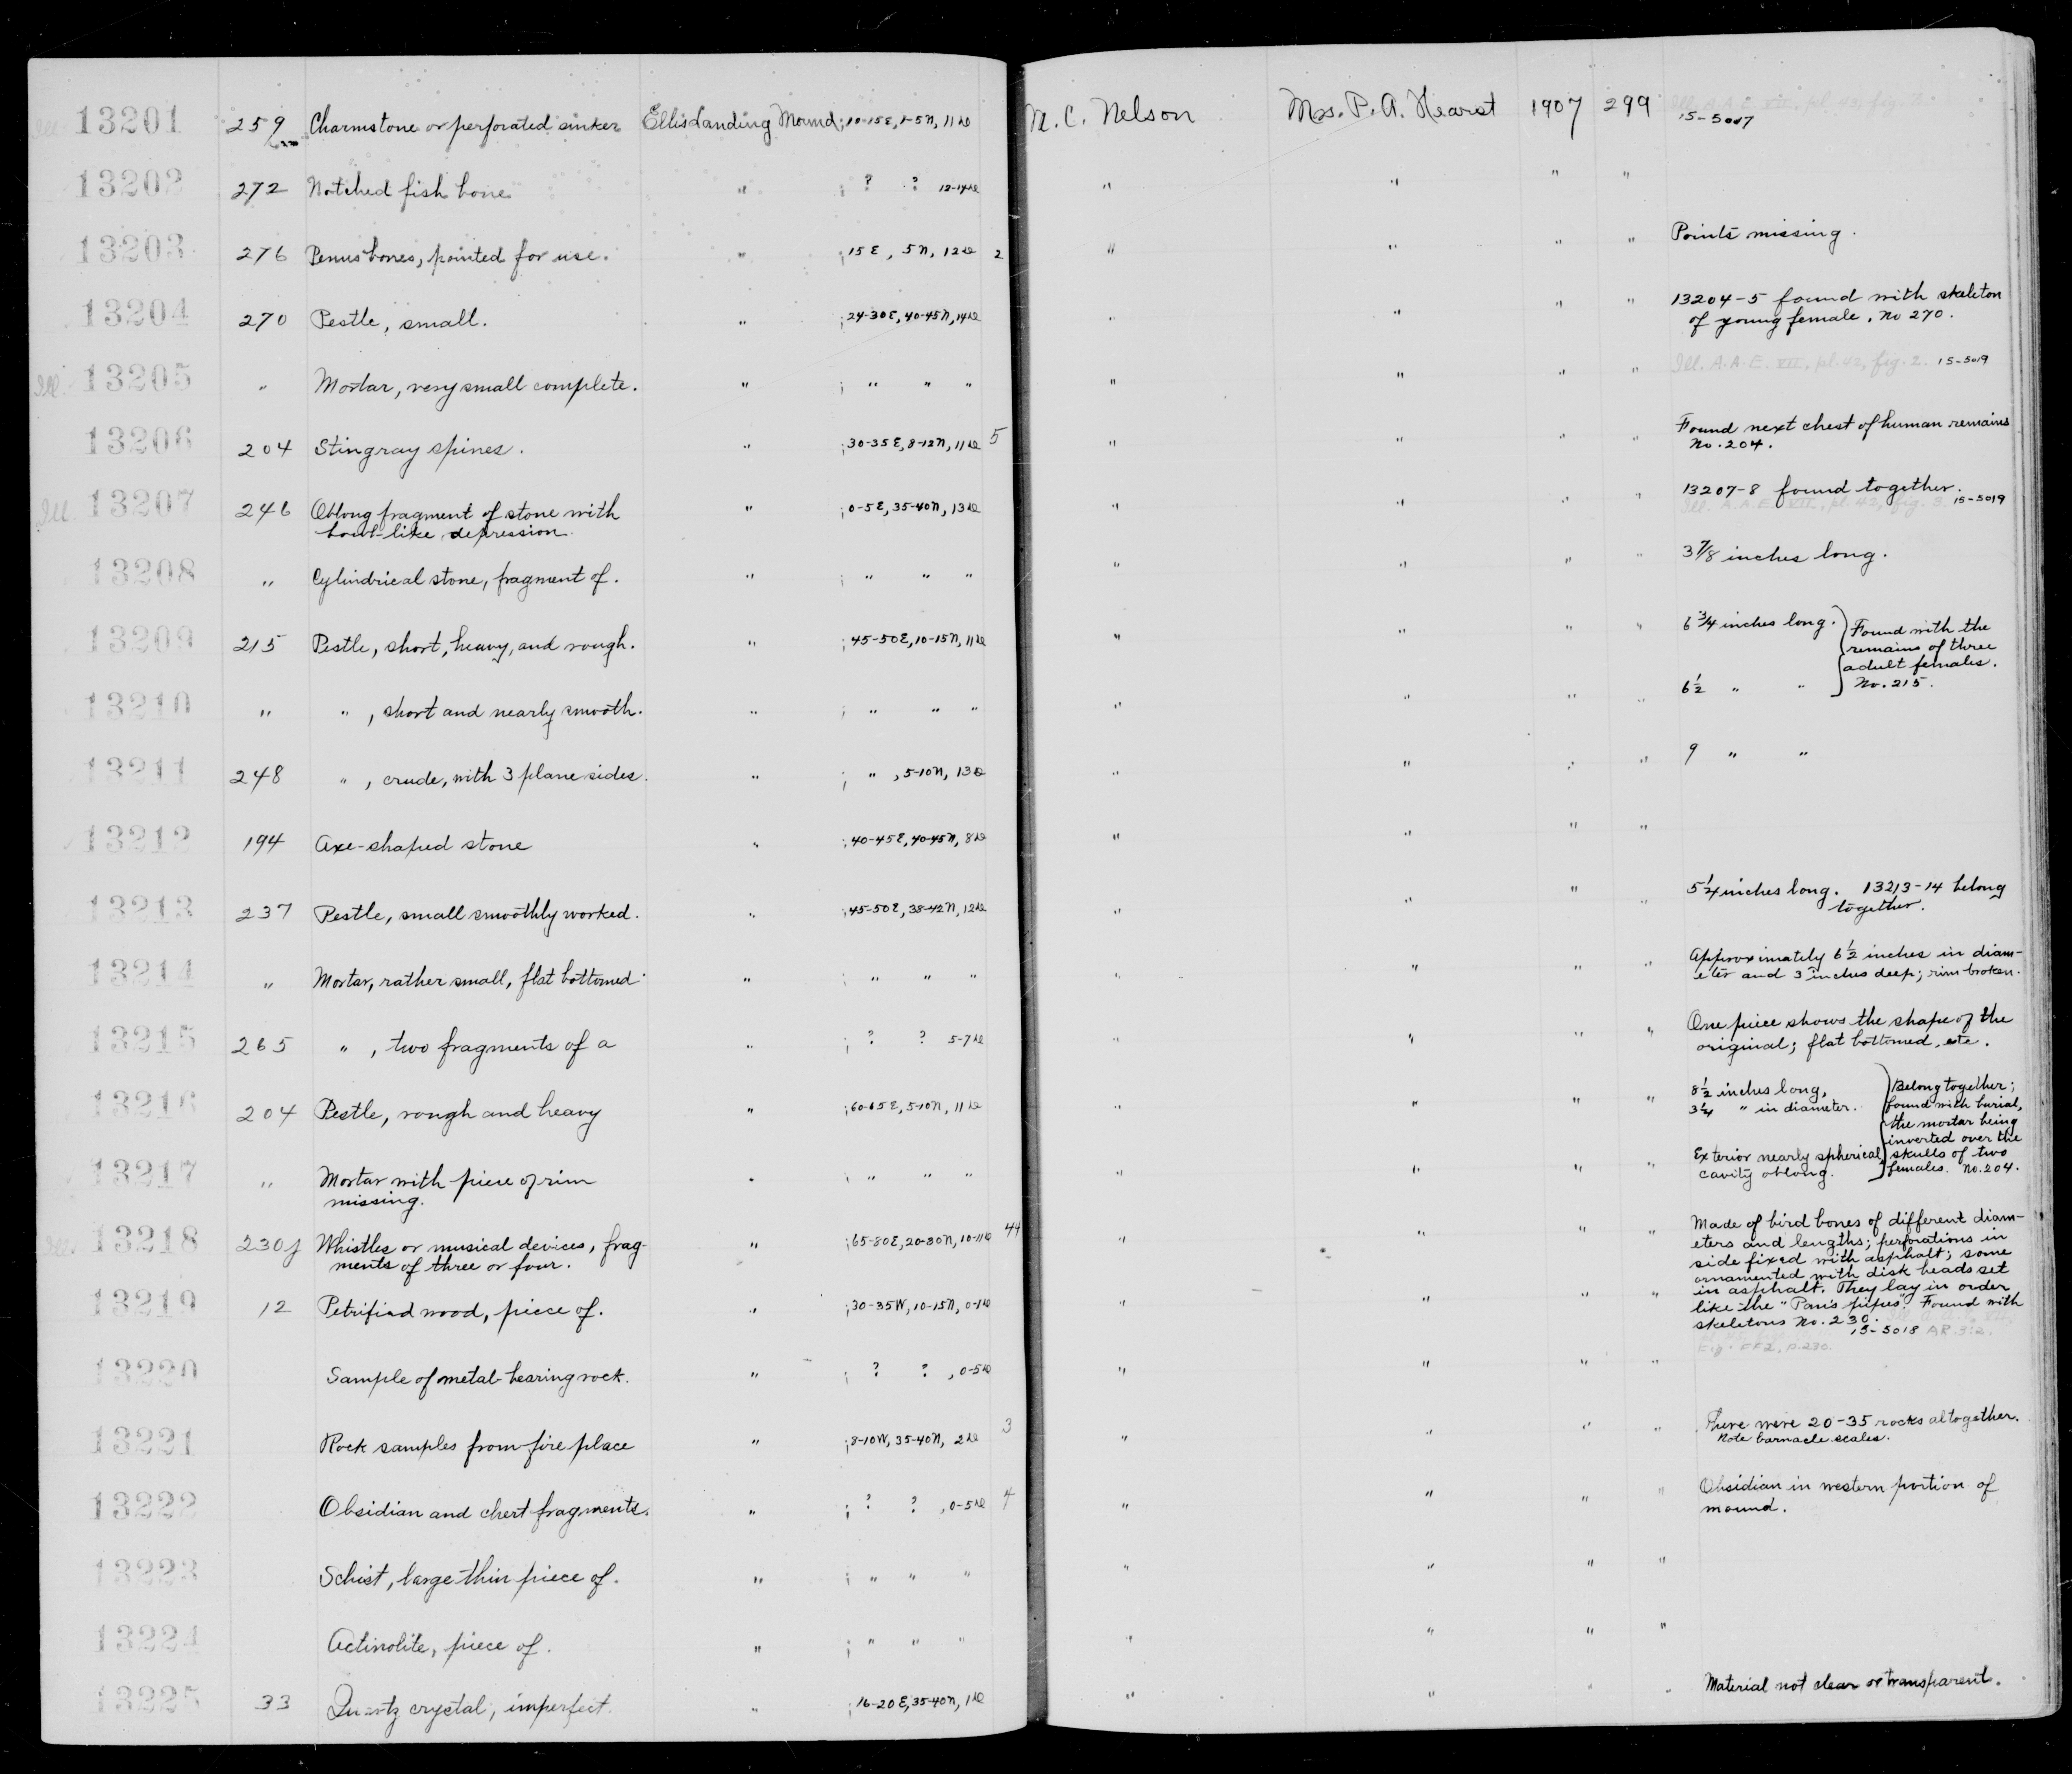 Ill. 13201 259 Charmstone or perforated sinker Ellis Landing Mound; 10-15E, 1-5N, 11 de N. C. Nelson Mrs. P. A. Hearst 1907 299 Ill. A.A.E. VII, pl. 43, fig.
15-5017
13202 272 Notched fish bone " ; ? ? 12-14 de " " " "
13203 276 Penus bones, pointed for use. " ; 15E, 5N, 12 de 2 " " " " Points missing.
13204 270 Pestle, small. " ; 24-30E, 40-45N, 14 de " " " " 13204-5 found with skeleton
of young female, No 270.
Ill. 13205 " Mortar, very small complete. " ; " " " " " " " Ill. A.A.E. VII, pl. 42, fig. 2. 15-5019
13206 204 Stingray spines. " ; 30-35E, 8-12N, 11 de 5 " " " " Found next chest of human remains
No. 204.
Ill. 13207 246 Oblong fragment of stone with " ; 0-5E, 35-40N, 13 de " " " " 13207-8 found together.
bowl-like depression. Ill. A.A.E. VII, pl. 42, fig. 3. 15-5019
13208 " Cylindrical stone, fragment of. " ; " " " " " " " 3 7/8 inches long.
13209 215 Pestle, short, heavy, and rough. " ; 45-50E, 10-15N, 11 de " " " " 6 3/4 inches long. Found with the
remains of three
adult females.
13210 " " , short and nearly smooth. " ; " " " " " " " 6 1/2 " " No. 215.
13211 248 " , crude, with 3 plane sides. " ; " , 5-10N, 13 de " " " " 9 " "
13212 194 Axe-shaped stone " ; 40-45E, 40-45N, 8 de " " " "
13213 237 Pestle, small smoothly worked. " ; 45-50E, 38-42N, 12 de " " " " 5 1/4 inches long. 13213-14 belong
together.
13214 " Mortar, rather small, flat bottomed. " ; " " " " " " " Approximately 6 1/2 inches in diam-
eter and 3 inches deep; rim broken.
13215 265 " , two fragments of a " ; ? ? 5-7 de " " " " One piece shows the shape of the
original; flat bottomed, etc.
13216 204 Pestle, rough and heavy " ; 60-65E, 5-10N, 11 de " " " " 8 1/2 inches long, Belong together;
3 1/4 " in diameter. found with burial,
the mortar being
inverted over the
13217 " Mortar with piece of rim " ; " " " " " " " Exterior nearly spherical, skulls of two
missing. cavity oblong. females. No. 204.
Ill. 13218 230j Whistles or musical devices, frag- " ; 65-80E, 20-30N, 10-11 de 44 " " " " Made of bird bones of different diam-
ments of three or four. eters and lengths; perforations in
side fixed with asphalt; some
ornamented with disk beads set
13219 12 Petrified wood, piece of. " ; 30-35W, 10-15N, 0-1 de " " " " in asphalt. They lay in order
like the "Pan's pipes". Found with
skeletons No. 230.
15-5018 AR.312.
p. 230.
13220 Sample of metal-bearing rock. " ; ? ? , 0-5 de " " " "
13221 Rock samples from fire place " ; 8-10W, 35-40N, 2 de 3 " " " " There were 20-35 rocks altogether.
Note barnacle scales.
13222 Obsidian and chert fragments. " ; ? ? , 0-5 de 4 " " " " Obsidian in western portion of
mound.
13223 Schist, large thin piece of. " ; " " " " " " "
13224 Actinolite, piece of. " ; " " " " " " "
13225 33 Quartz crystal, imperfect. " ; 16-20E, 35-40N, 1 de " " " " Material not clear or transparent.